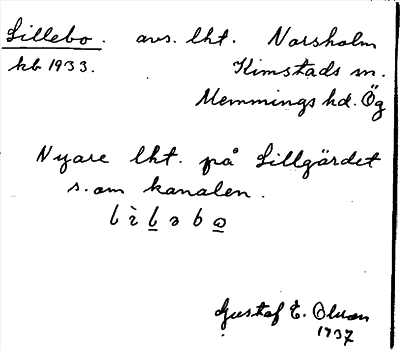 Lillebo. avs. lht. Norsholm
kb 1933. Kimstads sn.
Memmings hd. Ög
Nyare lht. på Lillgärdet
s. om kanalen.
lìləbo
Gustaf E. Olsson
1937